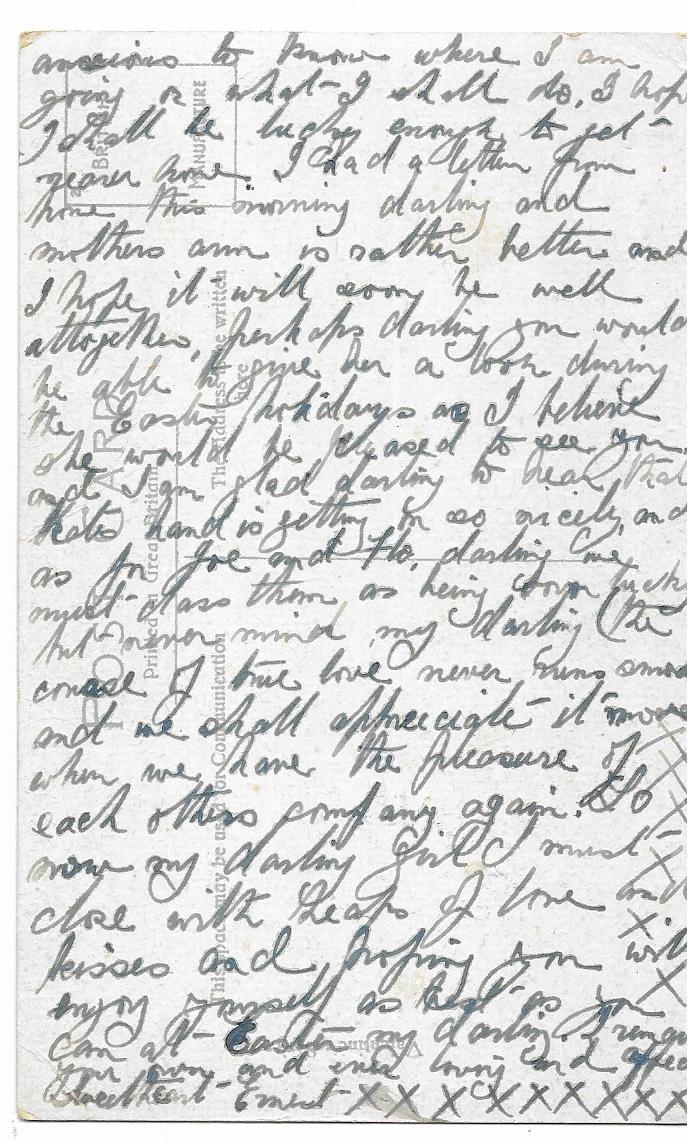 anxious to know where I am
going or what I shall do, I hop
I shall be lucky enough to get
nearer home. I had a letter from
home this morning darling and
mothers arm is rather better and
I hope it will soon be well
altogether, perhaps darling you would
be able to give her a look during
the Easter holidays as I believe
she would be pleased to see you.
and I am glad darling to hear that
hand is getting on so nicely, and
as for Joe and Flo, darling we
must class them as being down luck
but never mind my darling (the
course of true love never runs smoo
and we shall appreciate it more
when we have the pleasure of
each others company again. So
now my darling girl I must
close with heaps of love and
kisses and hoping you will
enjoy yourself as best as you
can at Easter my darling. I remain
your own and ever loving and affec
Sweetheart Ernest X X X X X X X X X
X
X
X
X
X
X
POST CARD
Printed in Great Britain
This space may be used for Communication
The Address to be written
here
BRITISH
MANUFACTURE